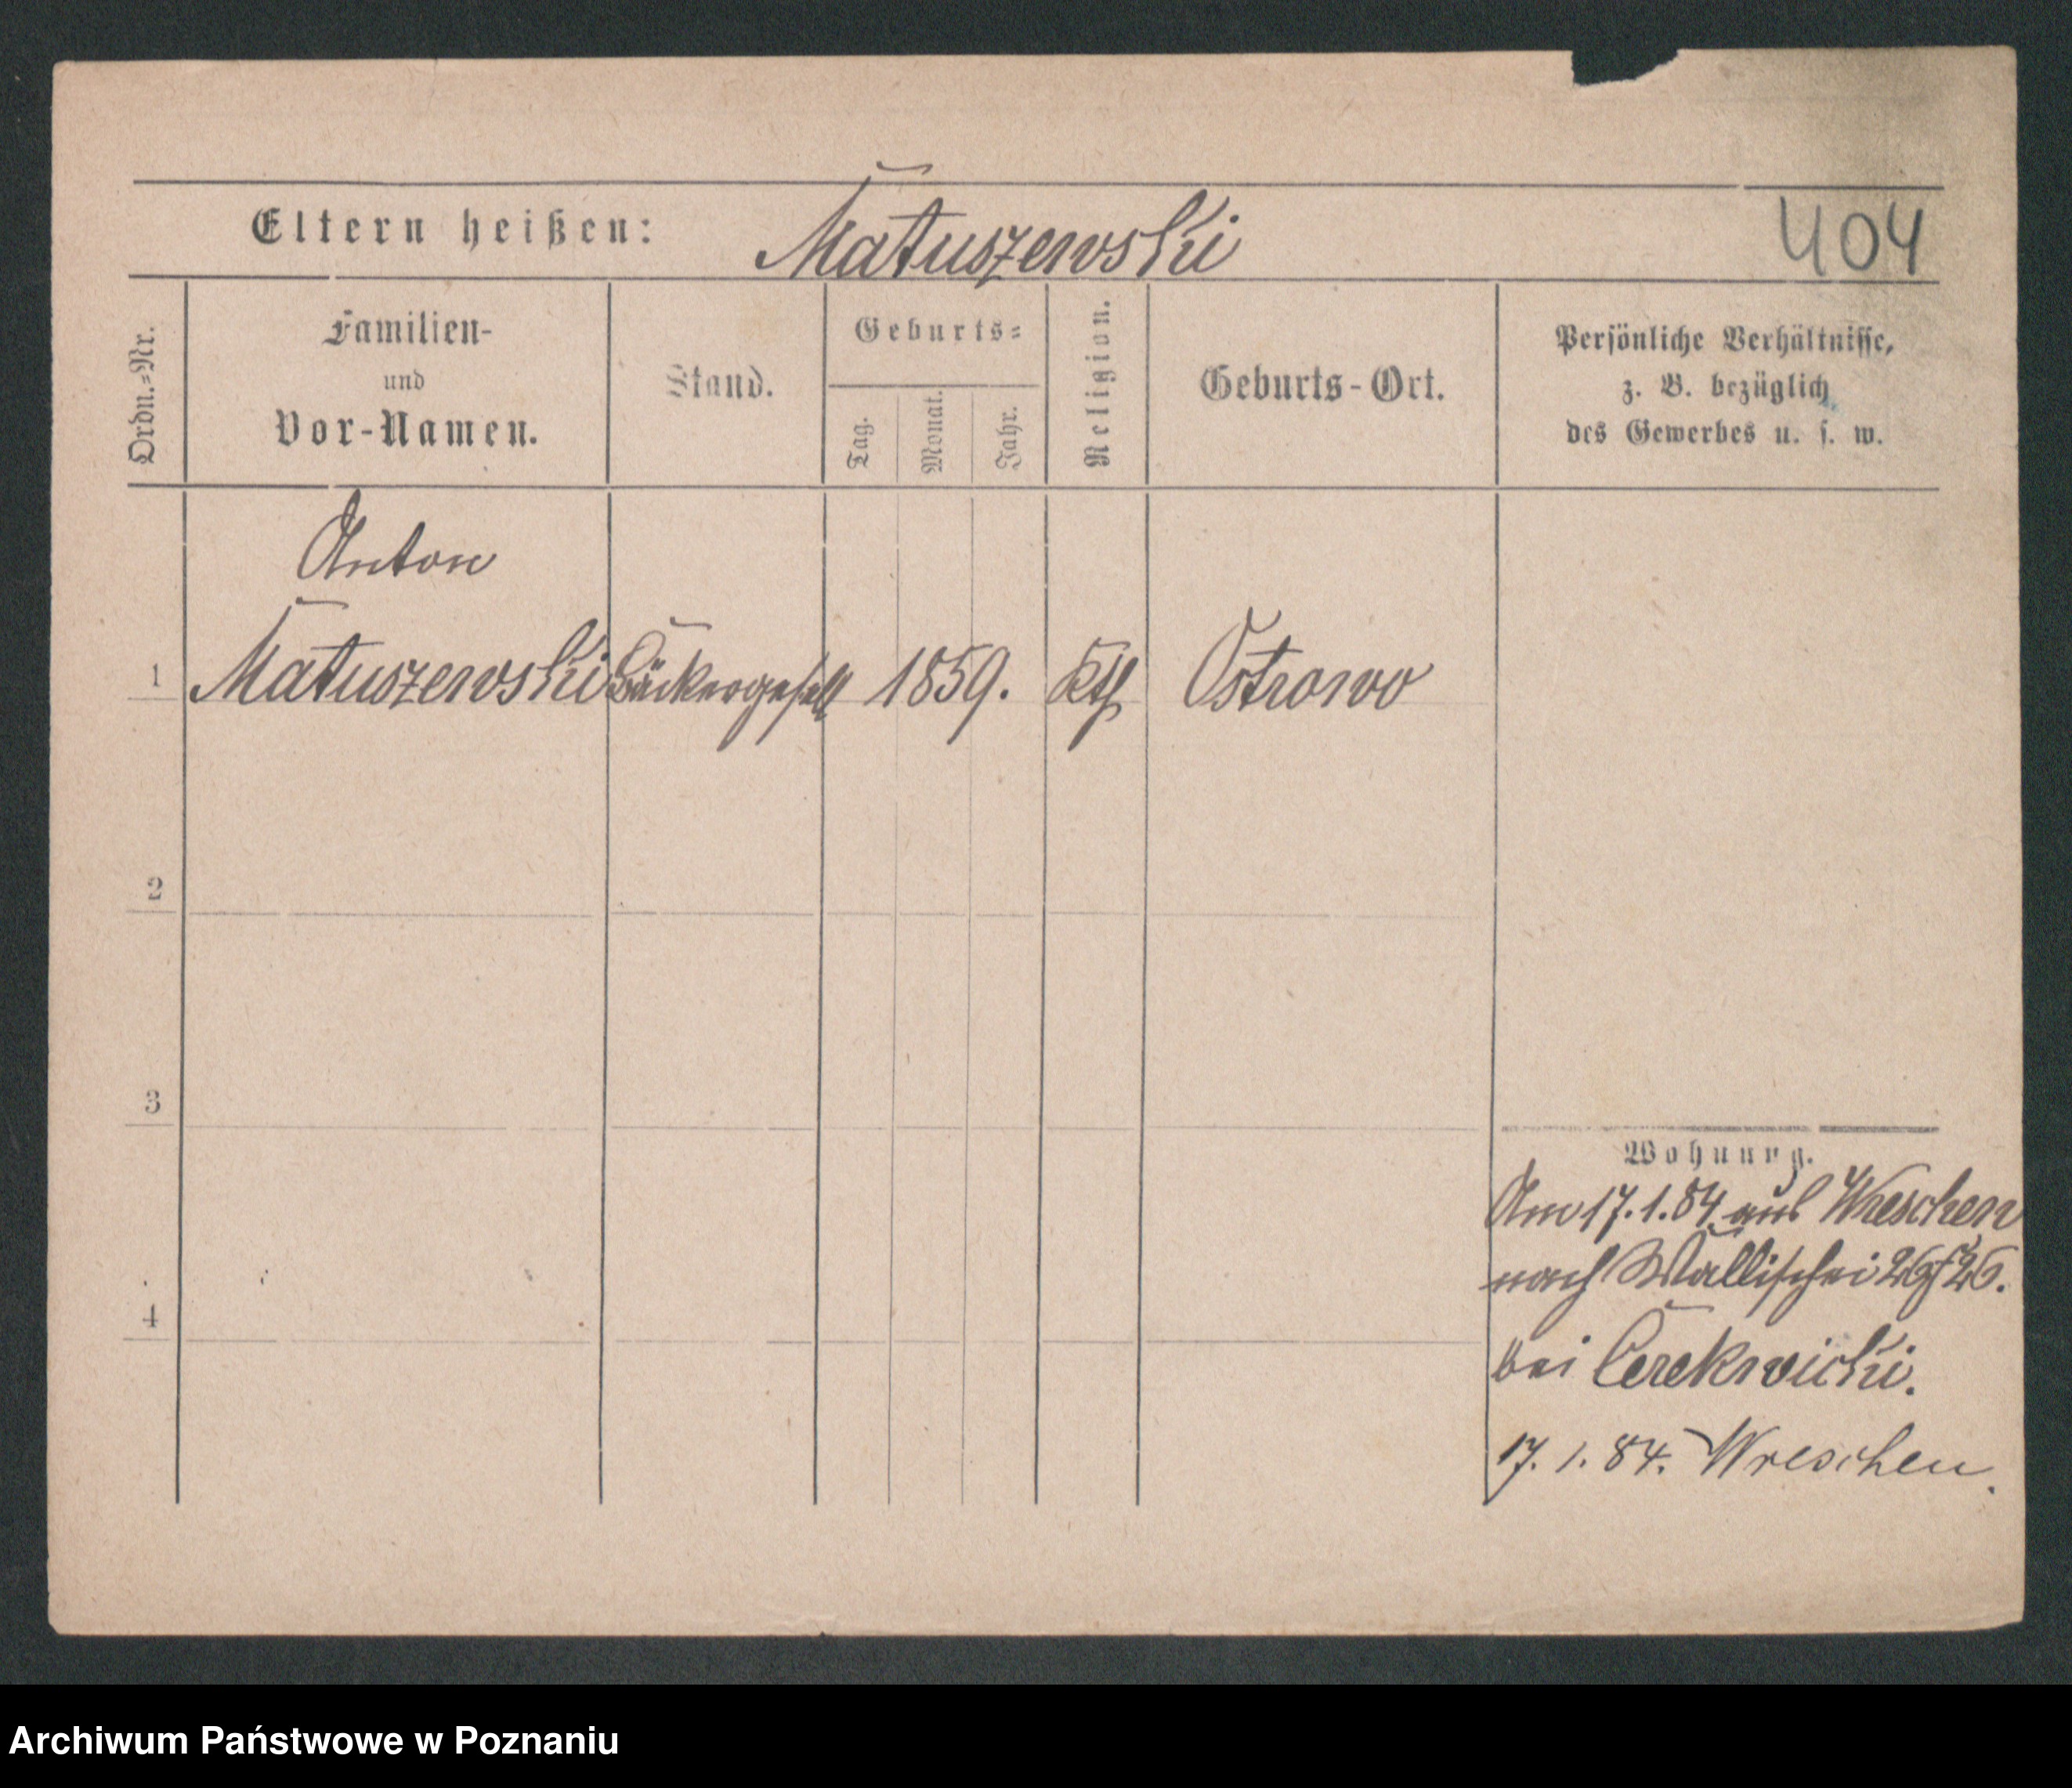 Eltern heißen: Matuszewski 404
Ordn.=Nr.
Familien-
und
Vor-Namen.
Stand.
Geburts=
Tag.
Monat.
Jahr.
Religion.
Geburts-Ort.
Persönliche Verhältnisse,
z. B. bezüglich
des Gewerbes u. s. w.
Anton
1 Matuszewski Bäckergesell 1859. Kth Ostrowo
2
3
4
Wohnung.
Am 17.1.84 aus Wreschen
nach Wallischei
bei Cerekwicki.
17. 1. 84. Wreschen.
Archiwum Państwowe w Poznaniu